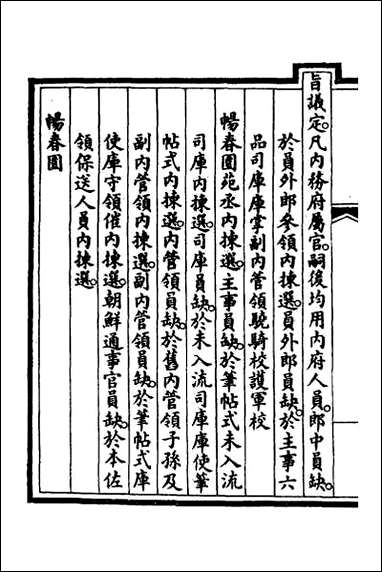 旨議定。凡內務府屬官。嗣後均用內府人員。郎中員缺。
於員外郎參領內揀選。員外郎員缺。於主事六
品司庫庫掌副內管領驍騎校護軍校
暢春園苑丞內揀選。主事員缺。於筆帖式未入流
司庫內揀選。司庫員缺。於未入流司庫庫使筆
帖式內揀選。內管領員缺。於舊內管領子孫及
副內管領內揀選。副內管領員缺。於筆帖式庫
使庫守領催內揀選。朝鮮通事官員缺。於本佐
領保送人員內揀選。
暢春園